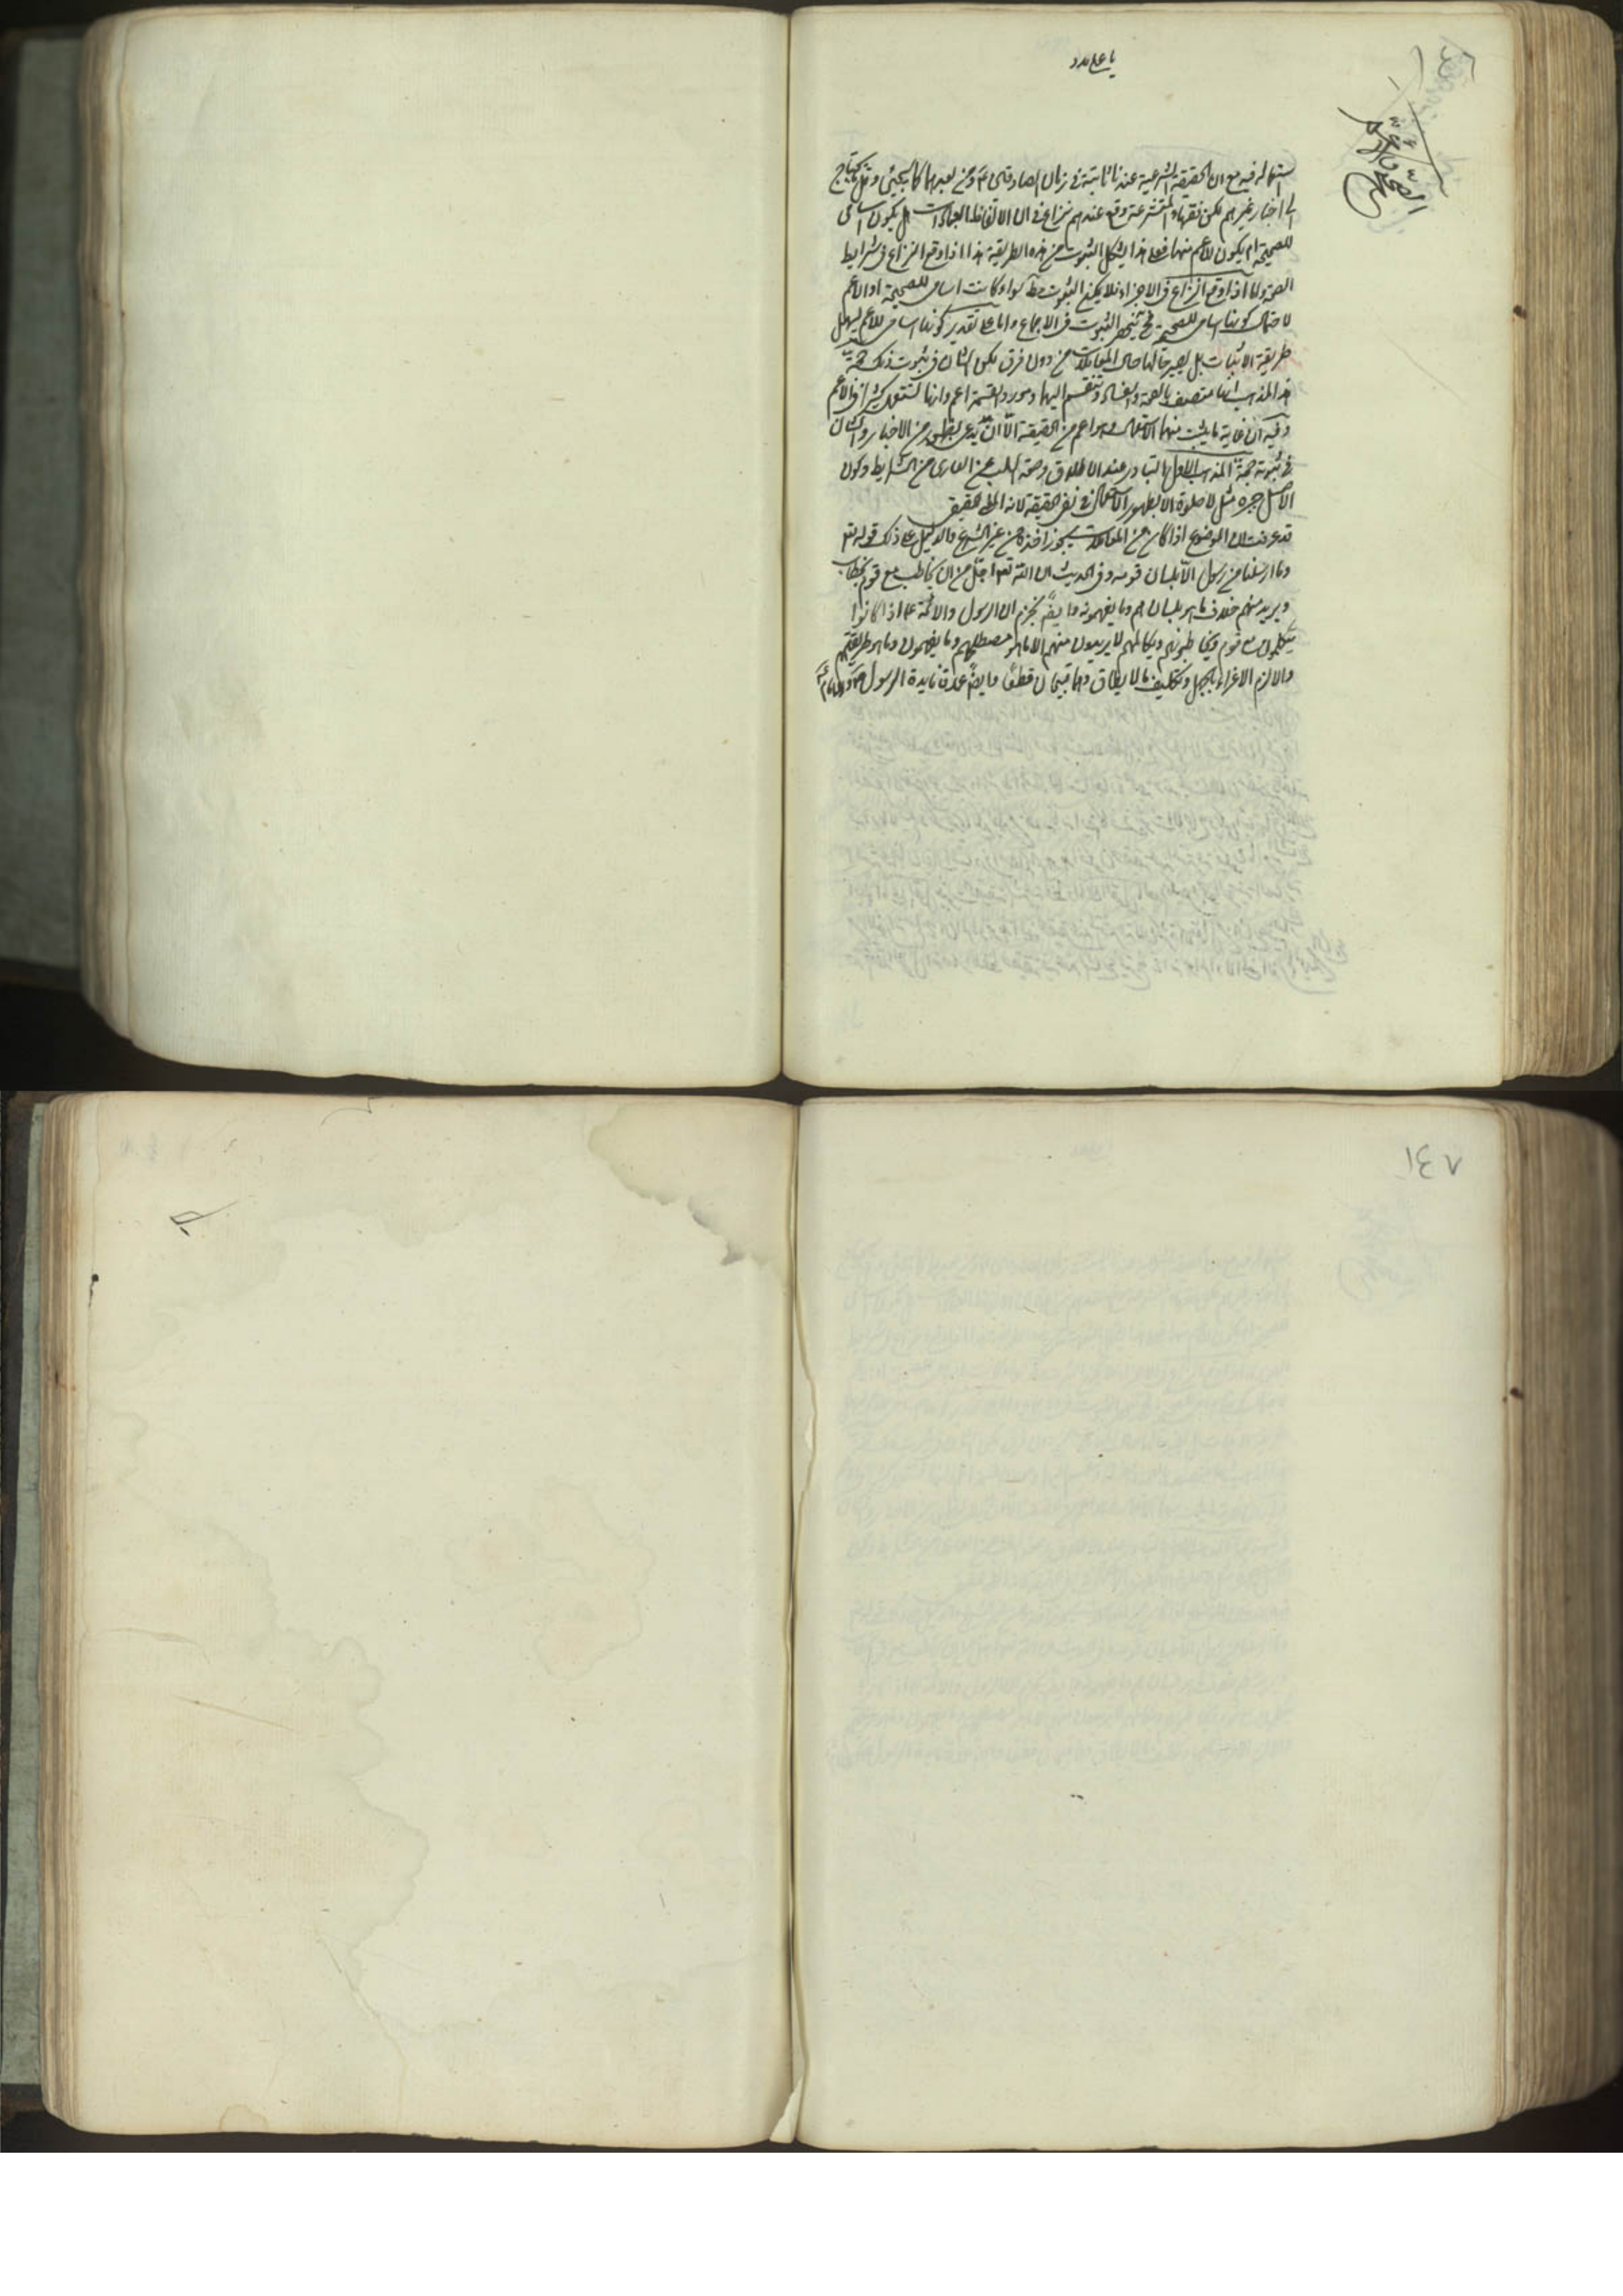 يا علي مدد
استعماله فيه مع ان الحقيقة الشرعية عندنا ثابتة في زمان الصادقين ع و من بعدهما كما سيجيئ و قل ما يحتاج
الى اخبار غيرهم لكن فقهاء المتشرعة وقع عندهم نزاع في ان الالفاظ العبادات هل يكون اسامي
للصحيحة ام يكون للاعم منها فعلى هذا يشكل الثبوت من هذه الطريقة هذا اذا وقع النزاع في شرايط
الصحة و اما اذا وقع النزاع في الاجزاء فلا يمكن الثبوت مط سواء كانت اسامي للصحيحة او الاعم
لاحتمال كونها اسامي للصحيحة فح ينحصر الثبوت في الاجماع و اما على تقدير كونها اسامي للاعم يسهل
طريقة الاثبات بل يصير حالها حال المعاملات من دون فرق لكن الشان في ثبوت ذلك حجة
هذا المذهب انها متصف بالصحة و الفساد و تنقسم اليهما و مورد القسمة اعم و انها تستعمل كثيرا في الاعم
و فيه ان غاية ما يثبت منهما الاستعمال و هو اعم من الحقيقة الا ان يدعى بظهور من الاخبار و الشان
في ثبوته حجة المذهب الاول التبادر عند الاطلاق و صحة السلب عن العاري من الشرايط و كون
الاصل في مثل لا صلوة الا بطهور الاستعمال في نفي الحقيقة لانه المط الحقيقي
قد عرفت ان الموضوع اذا كان من المعاملات يجوز اخذه من غير الشرع فالدليل على ذلك قوله تع
و ما ارسلنا من رسول الا بلسان قومه و في الحديث ان الله تع اجل من ان يخاطب مع قوم بخطاب
و يريد منهم خلاف ما هو بلسانهم و ما يفهمونه و ايضا نجزم ان الرسول و الائمة ع اذا كانوا
يتكلمون مع قوم و يخاطبونهم و يكالمهم لا يريدون منهم الا ما هو مصطلحهم و ما يفهمون و ما هو طريقتهم
و الا لزم الاغراء بالجهل و تكليف ما لا يطاق و هما قبيحان قطعا و ايضا عمدة فايدة الرسول ص و الامام ع